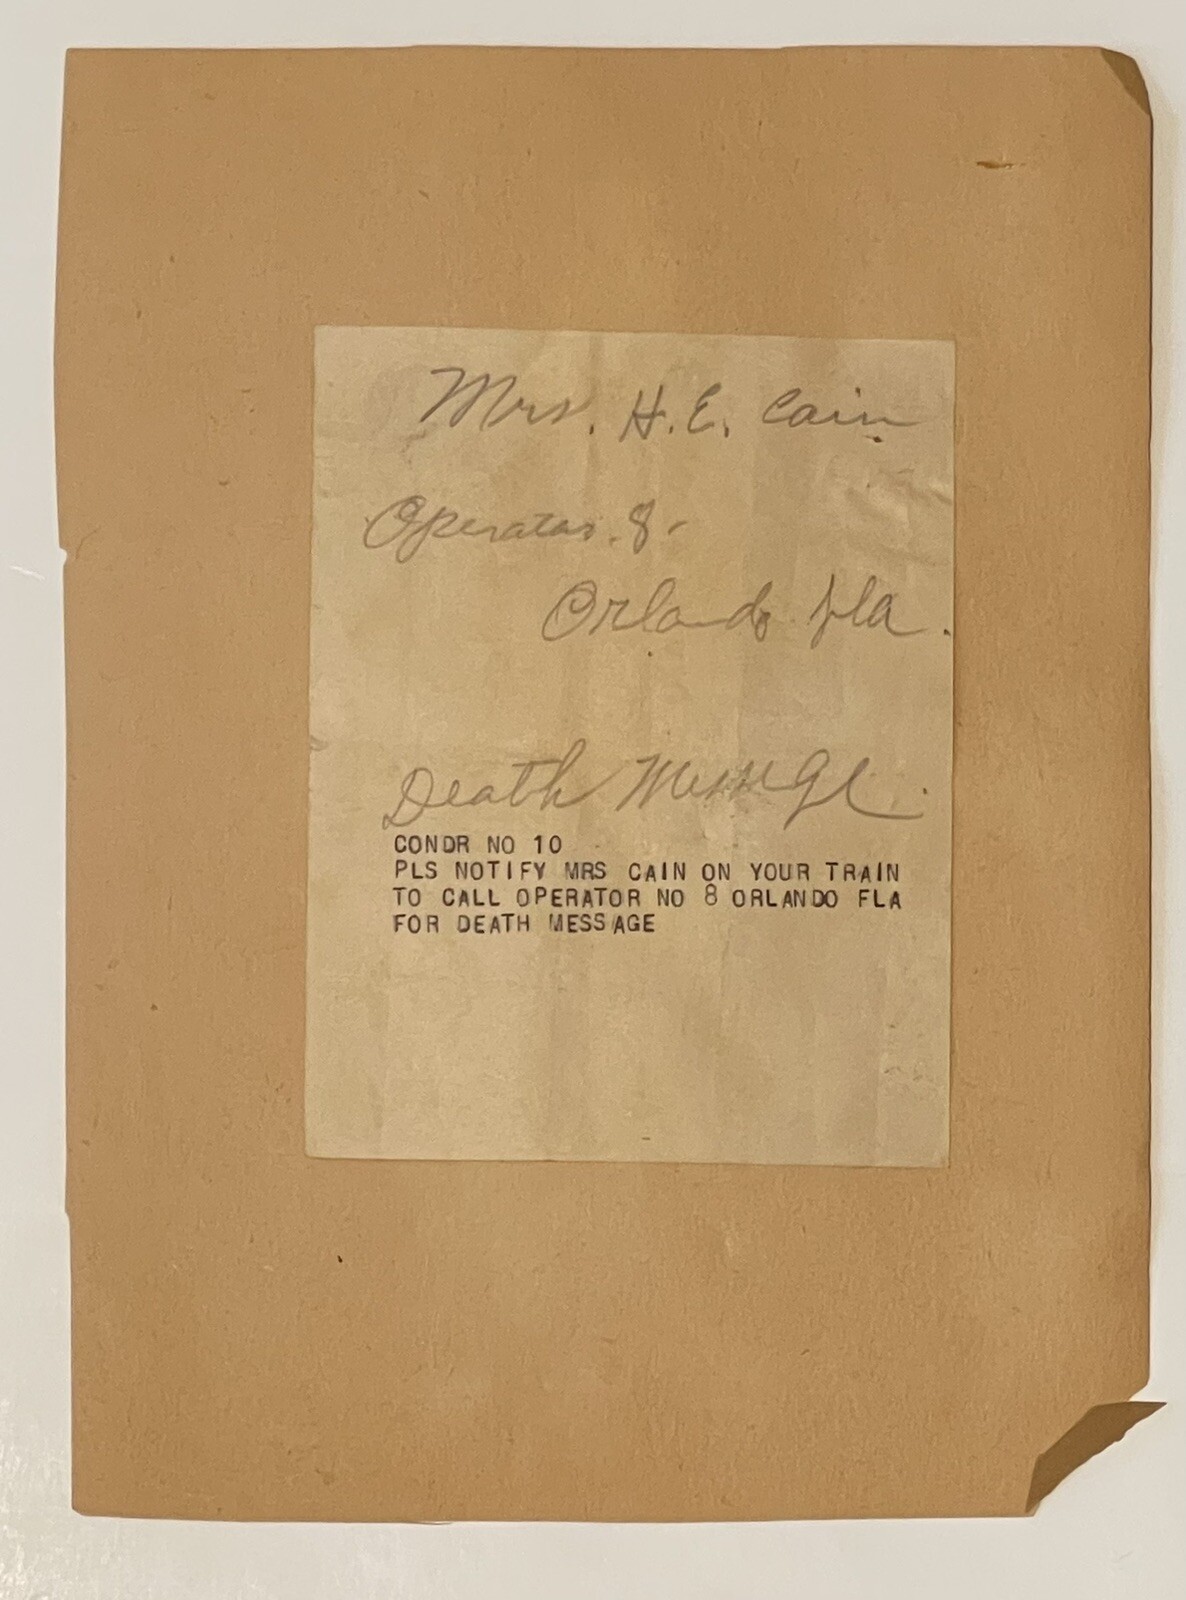 Mrs. H.E. Cain
Operator. 8-
Orlando Fla.
Death Message.
CONDR NO 10
PLS NOTIFY MRS CAIN ON YOUR TRAIN
TO CALL OPERATOR NO 8 ORLANDO FLA
FOR DEATH MESSAGE